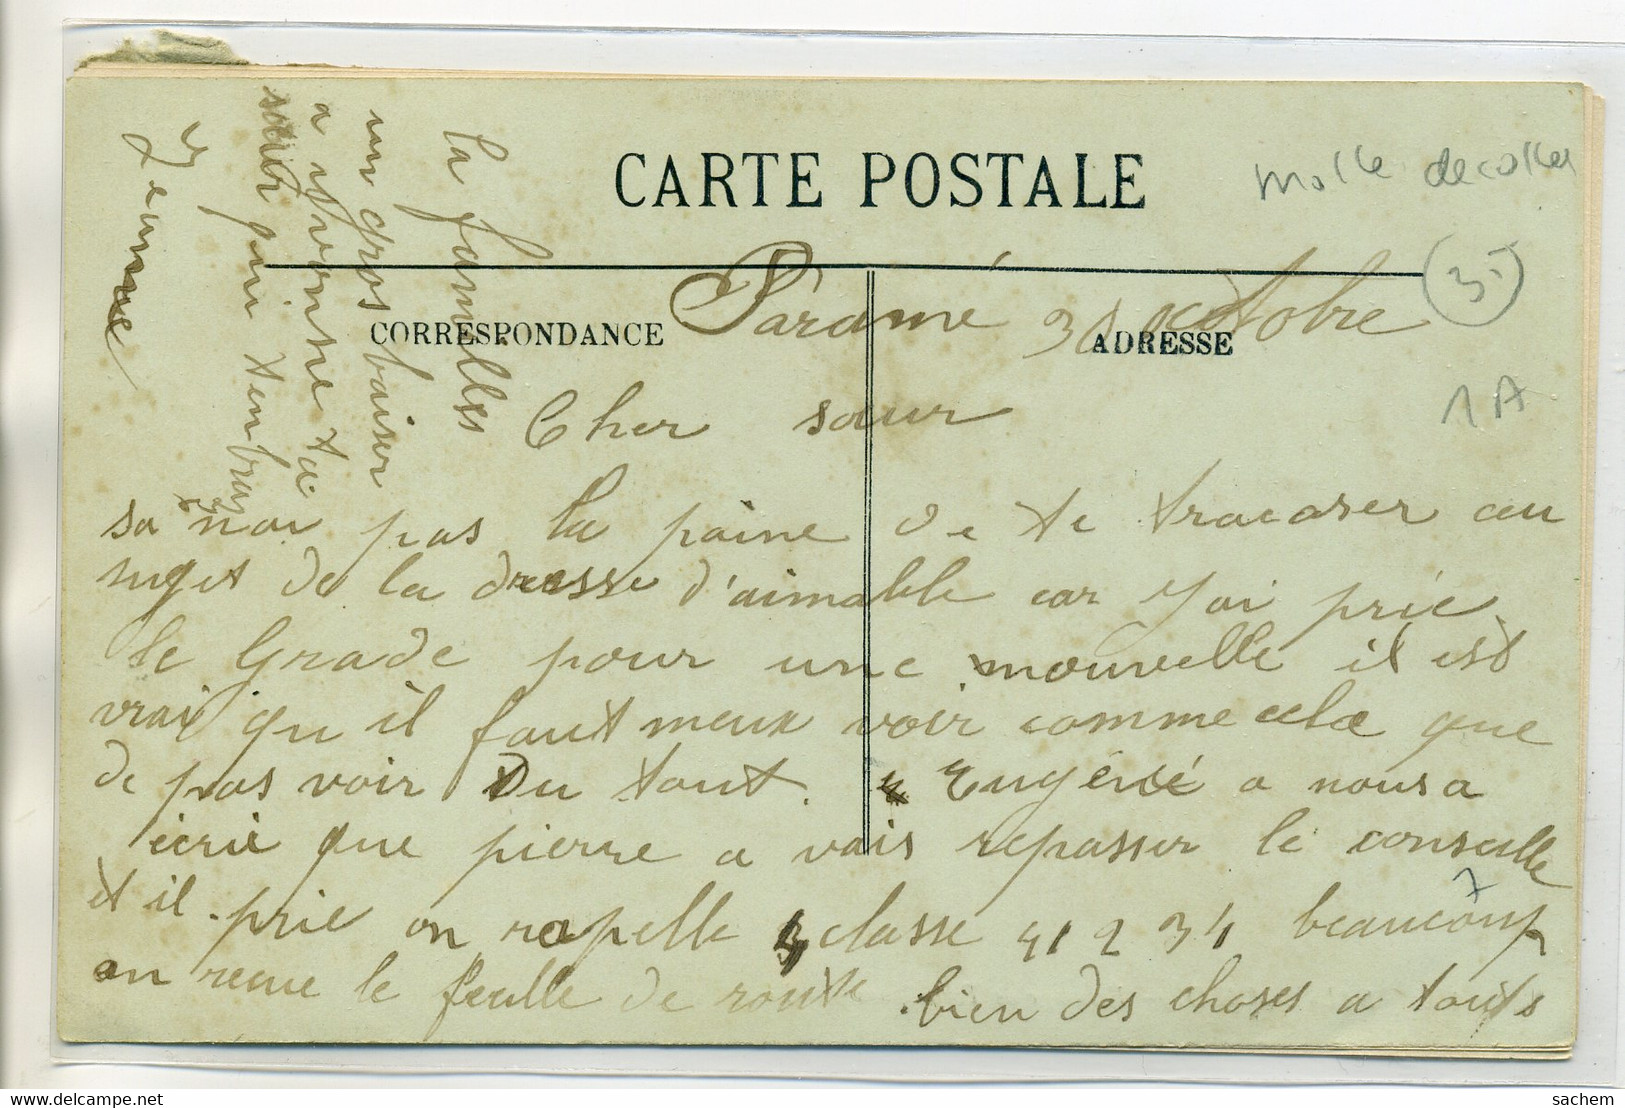 CARTE POSTALE
CORRESPONDANCE
ADRESSE
Paramé 30 octobre
Cher sœur
sa nai pas la paine de te tracaser au
suget de la dresse d'aimable car J'ai prié
le Grade pour une nouvelle il est
vrai qu il faut meux voir comme cela que
de pas voir Du tout. Eugénie a nous a
écrie que pierre a vais repasser le conseille
et il prie on rapelle 3 classe 41 2 34 beaucoup
on recue le feulle de route bien des choses a touts
la familles
un gros baiser
a yvonne ta
sœur qui t'enbras
Jeanne
molle decoller
35
1A
delcampe.net
sachem